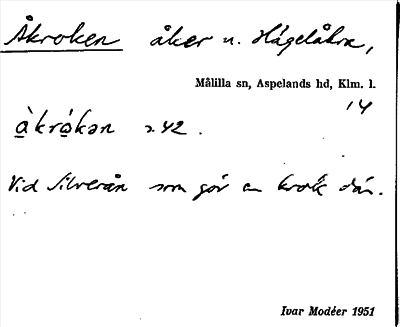 Åkroken åker u. Hägelåkra,
Målilla sn, Aspelands hd, Klm. l.
14
àkrókən 2.42.
Vid Silverån som gör en krok där.
Ivar Modéer 1951